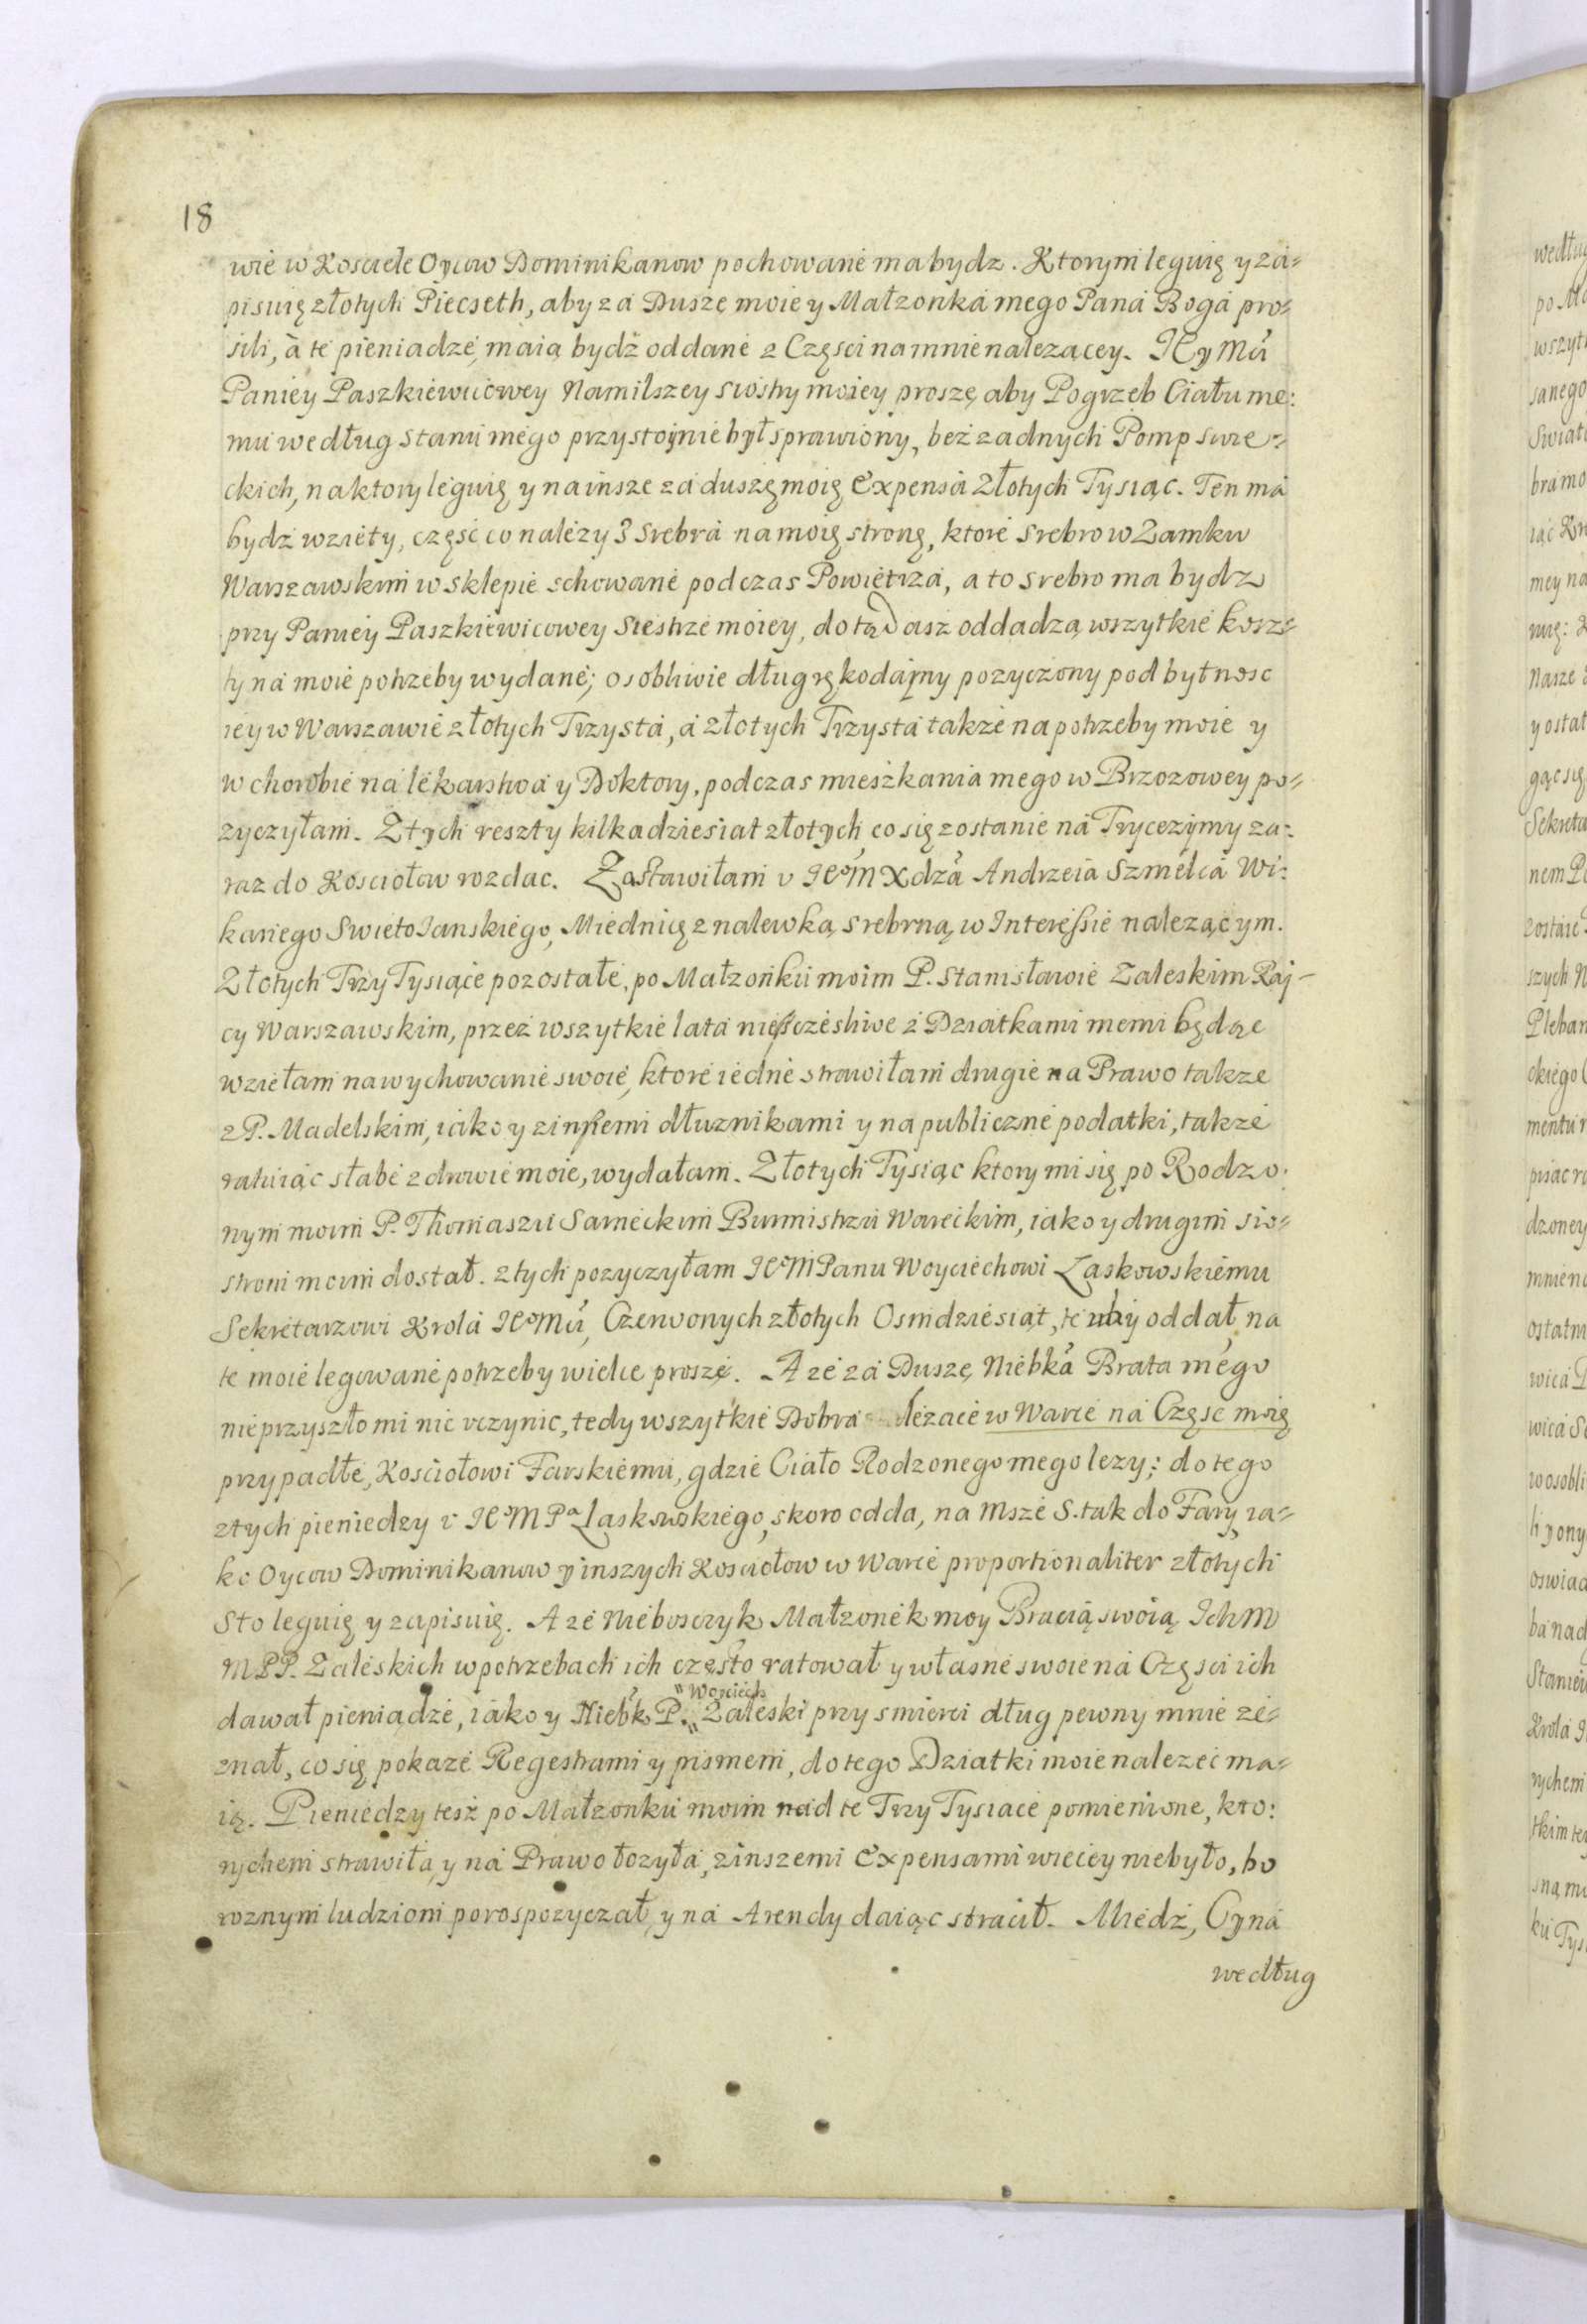 18
wie w Kosciele Oycow Dominikanow pochowane ma bydz. Ktorym leguię y za=
pisuię złotych Piecseth, aby za Dusze moie y Małzonka mego Pana Boga pro=
sili, à te pieniadze, maią bydź oddane z Częsci na mnie nalezącey. JEy Mći
Paniey Paszkiewicowey Namilszey siostry moiey proszę, aby Pogrzeb Ciału me:
mu według stanu mego przystoynie był sprawiony, bez zadnych Pomp swie=
ckich, na ktory leguię y na insze za duszę moię Expensa Złotych Tysiąc. Ten ma
bydź wziety, część co nalezy z srebra na moię stronę, ktore srebro w Zamku
Warszawskim w sklepie schowane podczas Powietrza, a to srebro ma bydz
przy Paniey Paszkiewicowey Siestrze moiey, dotąd asz oddadzą wszytkie kosz=
ty na moie potrzeby wydane; osobliwie dług rękodayny pozyczony pod bytnosc
iey w Warszawie złotych Trzysta, a złotych Trzysta takze na potrzeby moie y
w chorobie na lekarstwa y Doktory, podczas mieszkania mego w Brzozowey po=
zyczyłam. Z tych reszty kilkadziesiat złotych co się zostanie na Trycezymy za=
raz do Kosciołow rozdac. Zastawiłam v JEoM Xdza Andrzeia Szmelca Wi:
kariego Swieto Ianskiego, Miednicę z nalewką srebrną, w Interessie nalezącym.
Złotych Trzy Tysiące pozostałe, po Małzonku moim P. Stanisławie Zaleskim Raj=
cy Warszawskim, przez wszytkie lata niesczesliwe z Dziatkami memi będąc
wziełam na wychowanie swoie, ktore iedne strawiłam drugie na Prawo takze
z P. Madelskim, iako y z inszemi dłuznikami y na publiczne podatki, takze
ratuiąc słabe zdrowie moie, wydałam. Złotych Tysiąc ktory mi się po Rodzo:
nym moim P. Thomaszu Sarneckim Burmistrzu Wareckim, iako y drugim sio=
strom moim dostał. z tych pozyczyłam JEoM Panu Woyciechowi Laskowskiemu
Sekretarzowi Krola JEo Mći, Czerwonych złotych Osmdziesiąt, te aby oddał na
te moie legowane potrzeby wielce proszę. A ze za Duszę Niebka Brata mego
nie przyszło mi nic vczynic, tedy wszytkie Dobra lezace w Warce na Część moię
przypadłe, Kosciołowi Farskiemu, gdzie Ciało Rodzonego mego lezy; do tego
z tych pieniedzy v JEoM Pa Laskowskiego, skoro odda, na Msze S. tak do Fary, ia=
ko Oycow Dominikanow y inszych Kosciołow w Warce proportionaliter złotych
Sto leguię y zapisuię. A ze Nieboszczyk Małzonek moy Bracią swoią Ich M
M PP. Zaleskich w potrzebach ich często ratował y własne swoie na Częsci ich
dawał pieniądze, iako y Niebk P. Woyciech Zaleski przy smierci dług pewny mnie ze=
znał, co się pokaze Regestrami y pismem, do tego Dziatki moie nalezec ma=
ią. Pieniedzy tesz po Małzonku moim nad te Trzy Tysiace pomienione, kto:
rychem strawiła, y na Prawo łozyła, z inszemi Expensami wiecey niebyło, bo
roznym ludziom porospozyczał, y na Arendy daiąc stracił. Miedź, Cyna
według